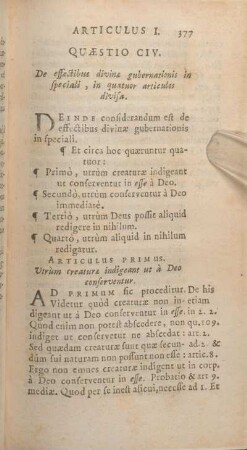 ARTICULUS I. 377
QUÆSTIO CIV.
De effectibus divinæ gubernationis in
speciali, in quatuor articulos
divisa.
DEINDE considerandum est de
effectibus divinæ gubernationis
in speciali.
¶ Et circa hoc quæruntur qua-
tuor:
¶ Primó, utrùm creaturæ indigeant
ut conserventur in esse à Deo.
¶ Secundó, utrùm conserventur à Deo
immediatè.
¶ Tertió, utrùm Deus possit aliquid
redigere in nihilum.
¶ Quartó, utrùm aliquid in nihilum
redigatur.
ARTICULUS PRIMUS.
Utrùm creaturæ indigeant ut à Deo
conserventur.
AD PRIMUM sic proceditur. De his
Videtur quòd creaturæ non in- etiam
digeant ut à Deo conserventur in esse. in 2. 2.
Quod enim non potest abscedere, non qu. 109.
indiget ut conservetur ne abscedat: art. 2.
Sed quædam creaturæ sunt quæ secun- ad. 2. &
dùm sui naturam non possunt non esse: artic. 8.
Ergo non omnes creaturæ indigent ut in corp.
à Deo conserventur in esse. Probatio & art 9.
mediæ. Quod per se inest alicui, necesse ad 1. Et